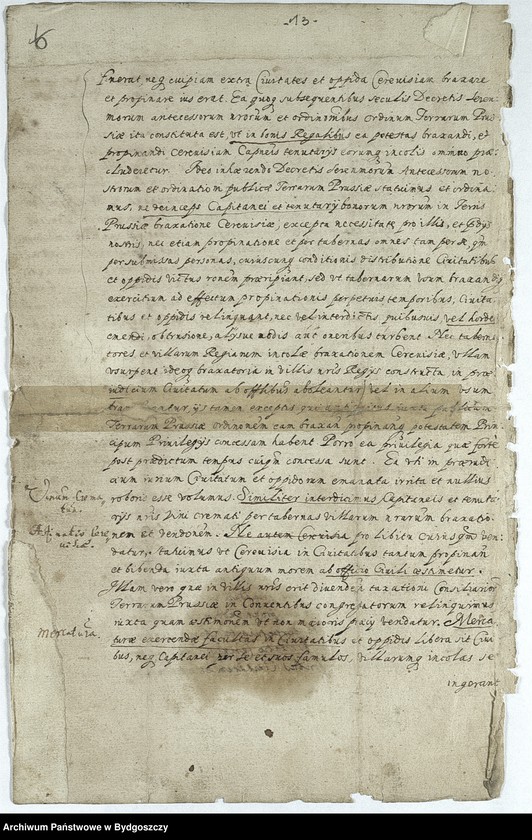 -13-
6
fuerat neq cuipiam extra Civitates et oppida Cerevisiam braxare
et propinare ius erat. Ea quoq subsequentibus seculis Decretis Seren-
morum antecessorum nrorum et ordinibus Ordinum Terrarum Prus
siæ ita constituta est, ut in bonis Regalibus ea potestas braxandi, et
propinandi Cerevisiam Capneis tenutarys eorumq incolis omnino præ-
cluderetur. Ideo inhærendo Decretis Serenmorum Antecessorum no-
strorum et ordinationi publicæ Terrarum Prussiæ statuimus et ordina-
mus, ne deinceps Capitanei et tenutary bonorum nrorum in Terris
Prussiæ braxatione Cerevisiæ, excepta necessitate pro illis, et
nostris, nec etiam propinatione et per tabernas omnes tam per se, qm
per submissas personas, cuiuscunq conditionis distributione Civitatibus
et oppidis victus ronem præripiant, sed ut tabernarum usum braxandi
exercitum ad effectum propinationis perpetuis temporibus, Civita-
tibus et oppidis relinquant, nec vel interdictis, quibusvis vel horde
emendi, obtrusione, alysve modis aut oneribus turbent. Nec taber-
tores, et villarum Regiarum incolæ braxationem Cerevisiæ, ullam
usurpent ideoq braxatoria in villis nris Regys constructa in præ-
iudicium Civitatum ab offlibus aboleantur vel in alium usum
ys tamen exceptis, qui iuxta publicam
Terrarum Prussiæ ordinonem eam braxan propinanq potestatem Prin-
cipum Privilegys concessam habent Porro ea privilegia quæ forte
post prædictum tempus cuiqm concessa sunt. Ea uti in præiudi-
cium iurium Civitatum et oppidorum emanata irrita et nullius
roboris esse volumus. Similiter interdicimus Capitaneis et tenuta-
rys nris vini cremati per tabernas villarum nrarum braxatio-
nem et vendonem. Ne autem Cerevisia pro libitu cuiusqm ven-
datur, statuimus ut Cerevisia in Civitatibus tantum propinan
et bibenda iuxta antiquum morem ab officio Civili æstimetur.
Illam vero quæ in villis nris erit divenden taxationi Consiliariorum
Terrarum Prussiæ in Conventibus congregatorum relinquimus
iuxta quam æstimonem ut non maioris precy vendatur. Merca-
turæ exercendæ facultas in Civitatibus et oppidis libera sit Civi-
bus, neq Capitanei per se et suos famulos, villarumq incolas se
ingerant
Vinum Crema-
tum.
Æstimatio Cere-
visiæ.
Mercatura.
Archiwum Państwowe w Bydgoszczy